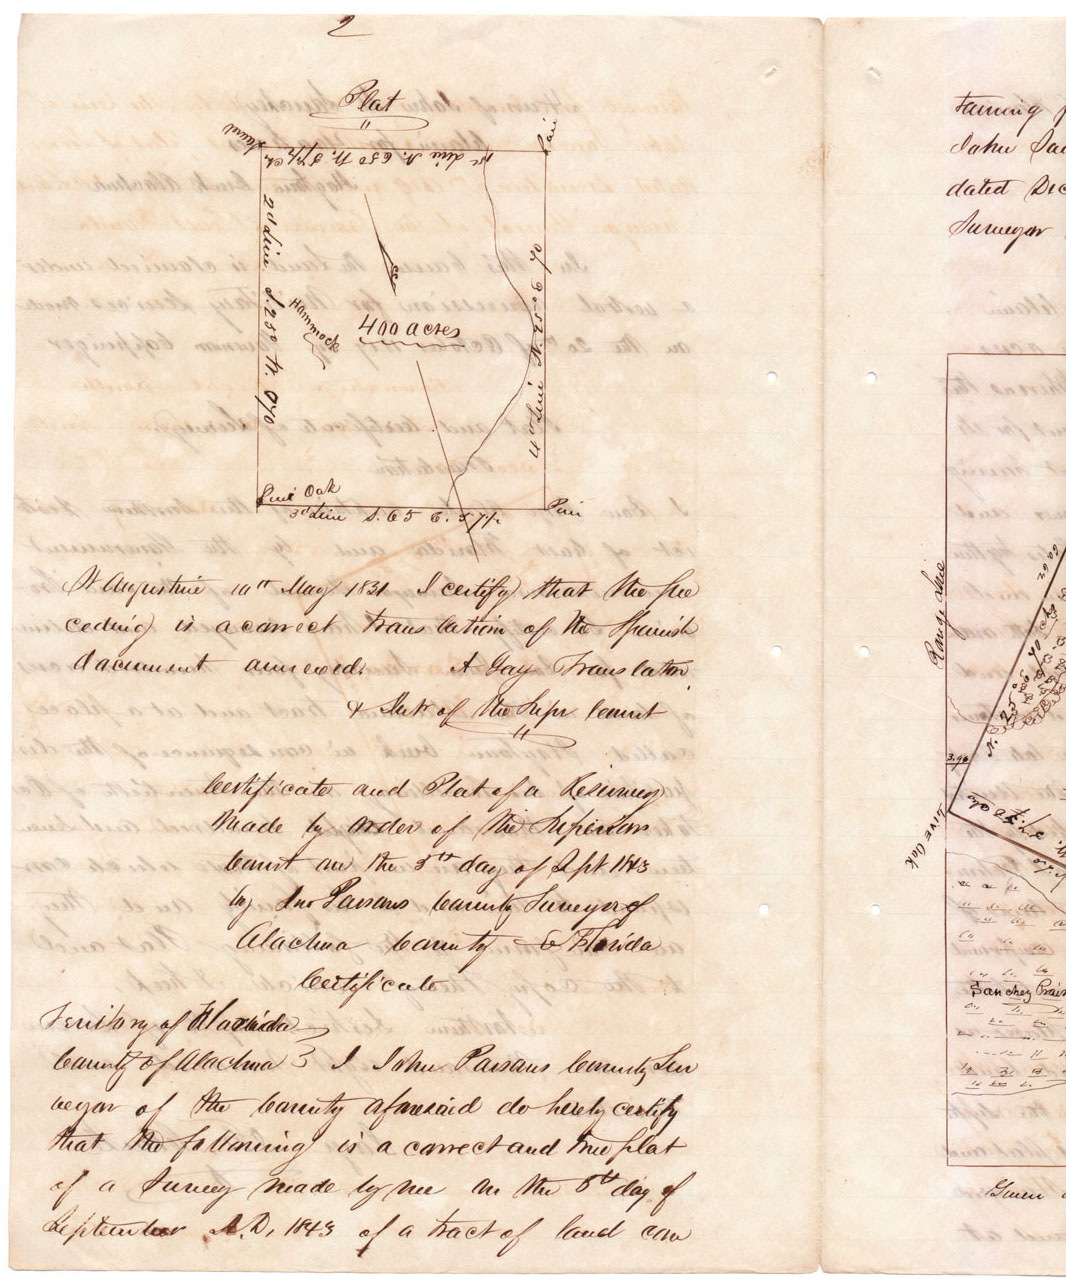 2
Plat
"
Laurel
Pine
1st Line N. 650 W. 57½ Ch.
2d Line S. 250 W. 070
Hammock
400 acres
4th Line N. 25° E 70
Live Oak
3d Line S. 65 E. 57½
Pine
St Augustine 10th May 1831 I certify that the pre
ceding is a correct translation of the Spanish
document annexed. A Gay Translator
& Clerk of the Supr Court
"
Certificate and Plat of a Resurvey
Made by order of the Superior
Court on the 5th day of Sept 1843
by Jno Parsons County Surveyor of
Alachua County E Florida
Certificate
Territory of Florida
County of Alachua } I John Parsons County Sur
veyor of the County aforesaid do hereby certify
that the following is a correct and true plat
of a Survey made by me on the 5th day of
September A.D. 1843 of a tract of land con
taining
John
dated Dec
Surveyor
Range Line
N. 25° E 70 chs
3.96
Live Oak
Sanchez Prair
Given